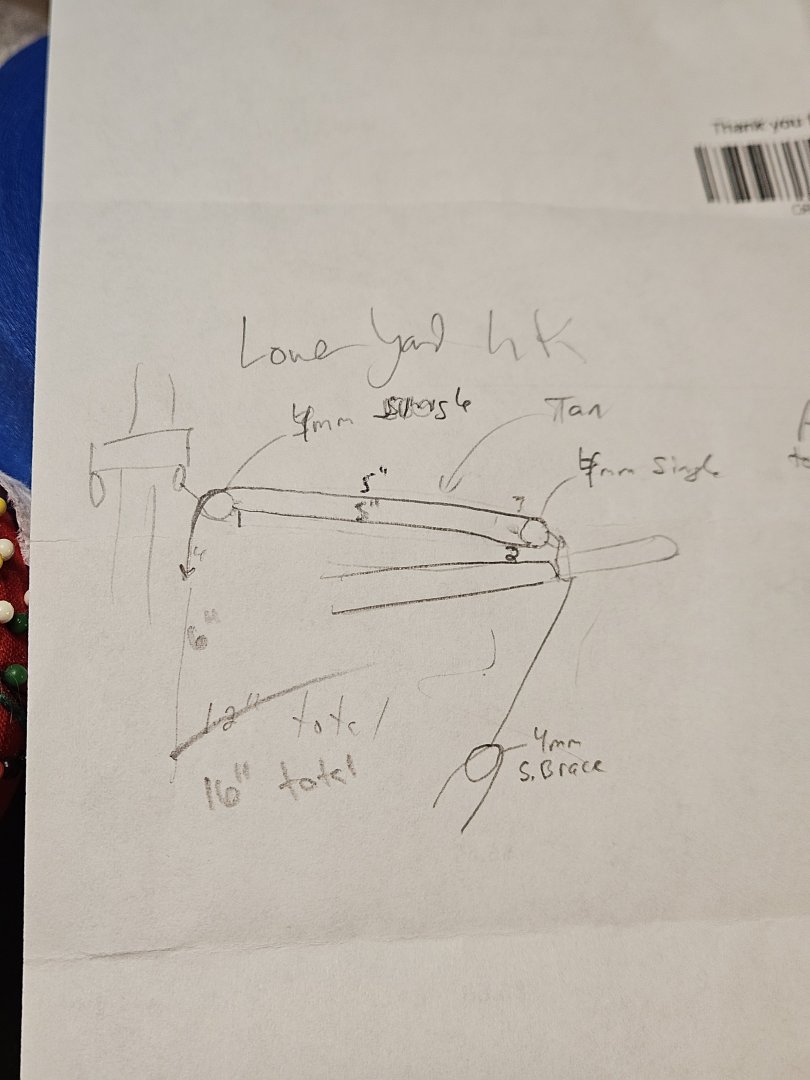 Thank you
Lower Yard
4mm
Tan
4mm Single
5"
5"
1
3
2
6"
12" total
16" total
4mm
S. Brace